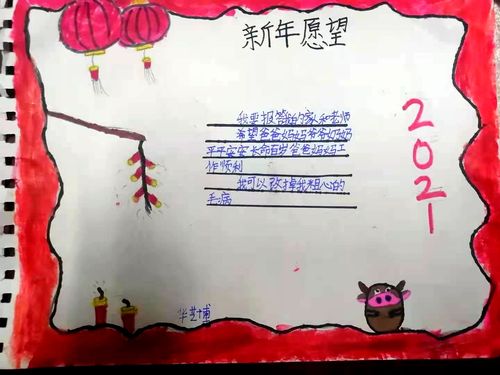 新年愿望
我要报答的家和老师
希望爸爸妈妈爷爷奶奶
平平安安长命百岁爸爸妈妈工
作顺利
我可以改掉我粗心的
毛病
2021